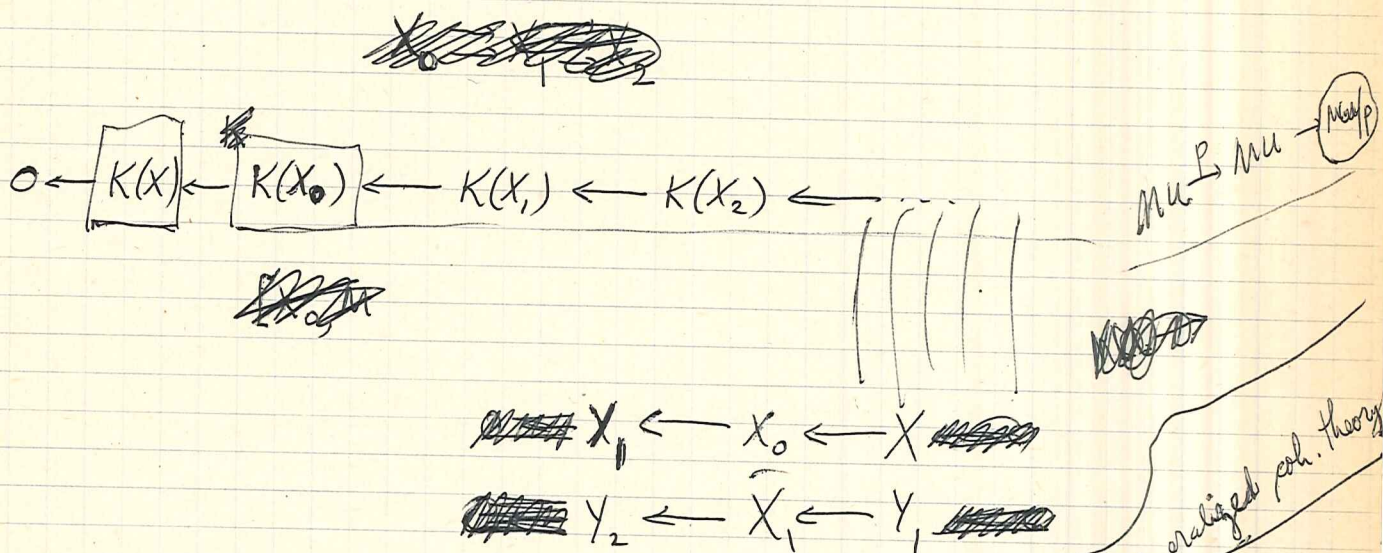 0 ← K(X) ← K(X₀) ← K(X₁) ← K(X₂) ← ....
MU →^P MU → MU/P
X₁ ← X₀ ← X
Y₂ ← X₁ ← Y₁
coh. theory